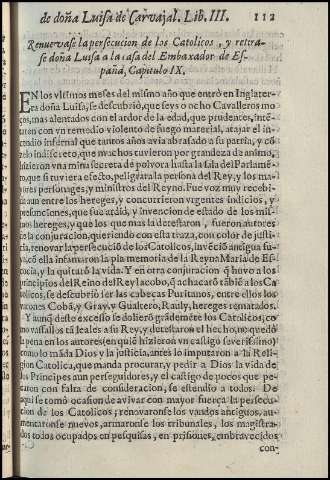 de doña Luisa de Carvajal. Lib. III. 112
Renuevase la persecucion de los Catolicos, y retira-
se doña Luisa a la casa del Embaxador de Es-
paña, Capitulo IX.
EN los vltimos meses del mismo año que entrò en Inglater-
ra doña Luisa, se descubriò, que seys o ocho Cavalleros mo
ços, mas alentados con el ardor de la edad, que prudentes, inten
tauen con vn remedio violento de fuego material, atajar el in-
cendio infernal que tantos años avia abrasado a su patria, y cõ
zelo indiscreto, que muchos tuvieron por grandeza de animo,
hizieron vna mina secreta de polvora hasta la Sala del Parlamẽ-
to, que si tuviera efeto, peligràra la persona del Rey, y los ma-
yores personages, y ministros del Reyno. Fue voz muy recebi-
da aun entre los hereges, y concurrieron vrgentes indicios, y
presunciones, que fue ardid, y invencion de estado de los mis-
mos hereges, y que los que mas la detestaron, fueron autores
de la conjuracion, queriendo con esta traza, con color de justi-
cia, renovar la persecuciõ de los Catolicos, invẽciõ antigua su-
ya, cõ ella infamaron la pia memoria de la Reyna Maria de Es-
cocia, y la quitarò la vida. Y en otra conjuracion q̃ huvo a los
principios del Reino del Rey Iacobo, q̃ achacarõ tãbiẽ a los Ca
tolicos, se descubriò ser las cabeças Puritanos, entre ellos los
varones Cobã, y Gray, y Gualtero, Rauly, hereges rematados.
Y aunq̃ deste excesso se dolierò grãdemẽte los Catolicos, co
mo vassallos tã leales a su Rey, y detestaron el hecho, no quedò
la pena en los autores (en quiẽ hizieron vn castigo severissimo)
como lo mãda Dios y la justicia, antes lo imputaron a la Reli-
gion Catolica, que manda procurar, y pedir a Dios la vida de
los Principes aun perseguidores, y el castigo de pocos que pe-
caron con falta de consideracion, se estendio a todos. De
aqui se tomò ocasion de avivar con mayor fuerça la persecu-
cion de los Catolicos; renovaronse los vandos antiguos, au-
mentaronse nuevos, armaronse los tribunales, los magistra-
dos todos ocupados en pesquisas, en prisiones, embravecidos
con-